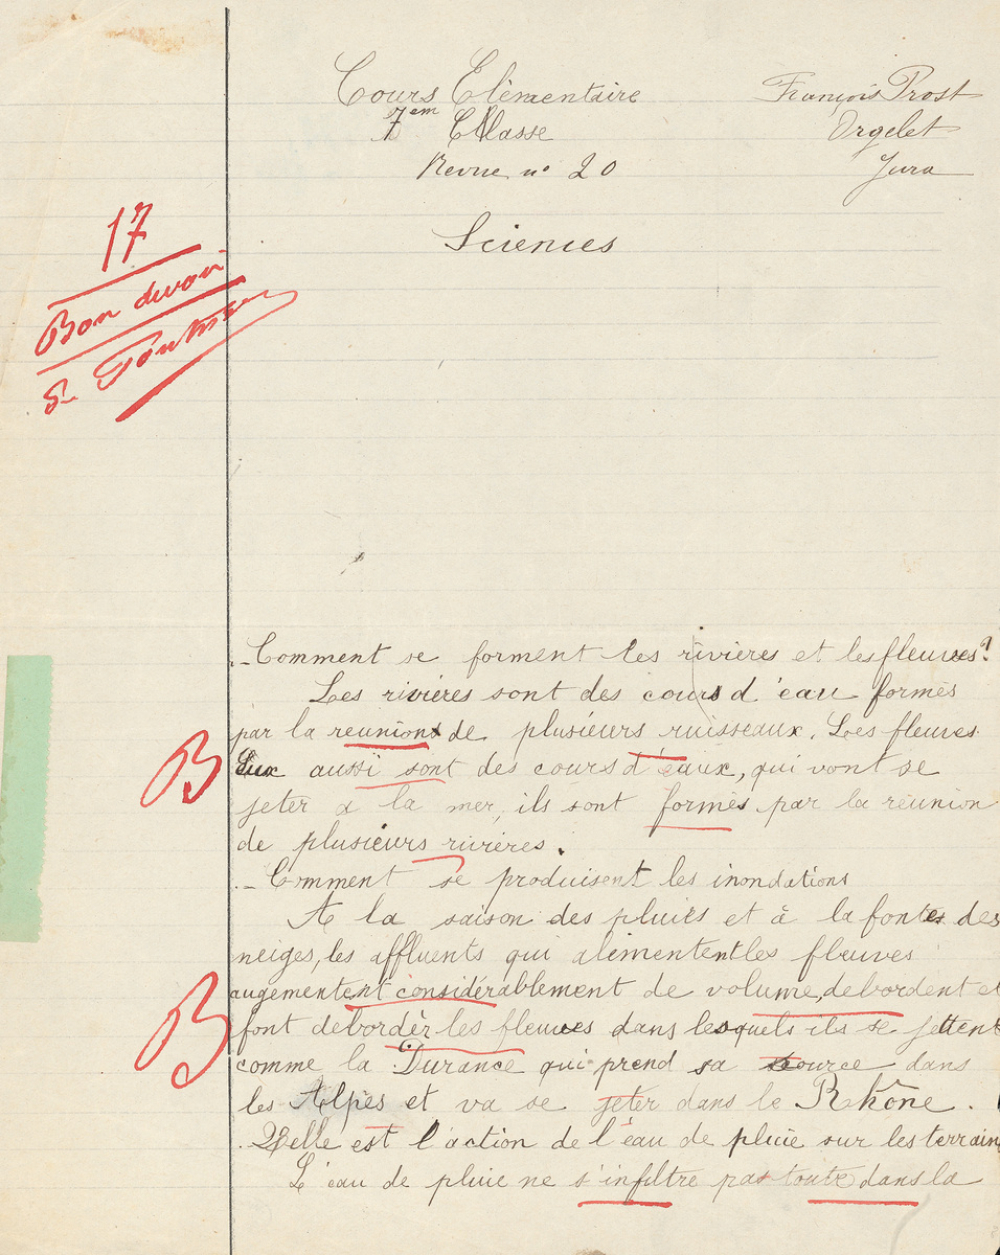 Cours Elémentaire
François Prost
7em Classe
Orgelet
Revue n° 20
Jura
Sciences
17
Bon devoir
B
B
- Comment se forment les rivières et les fleuves?
Les rivières sont des cours d'eau formés
par la reunion de plusieurs ruisseaux. Les fleuves
Eux aussi sont des cours d'eaux, qui vont se
jeter a la mer, ils sont formès par la réunion
de plusieurs rivières.
- Comment se produisent les inondations
A la saison des pluies et à la fonte des
neiges, les affluents qui alimentent les fleuves
augementent considérablement de volume, debordent et
font debordèr les fleuves dans lesquels ils se jettent
comme la Durance qui prend sa source dans
les Alpes et va se jeter dans le Rhône.
Quelle est l'action de l'eau de pluie sur les terrain
L'eau de pluie ne s'infiltre pas toute dans la